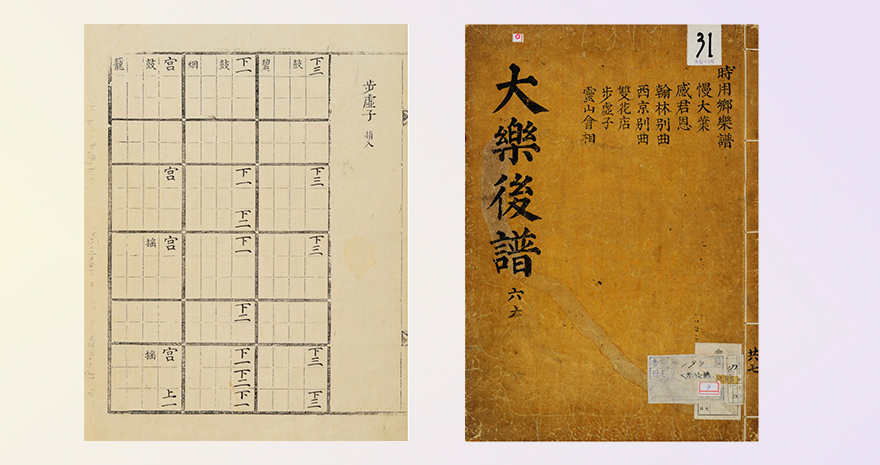 步虛子
下三 下三 下三 下三 下三
鼓
碧
下一 下一 下二 下一 下二 下一 下二 下一
鼓
烟
宮 宮 宮 宮 上一
鼓 搖 搖
籠
31
時用鄕樂譜
慢大葉
感君恩
翰林別曲
西京別曲
雙花店
步虛子
靈山會相
大樂後譜 六
共七